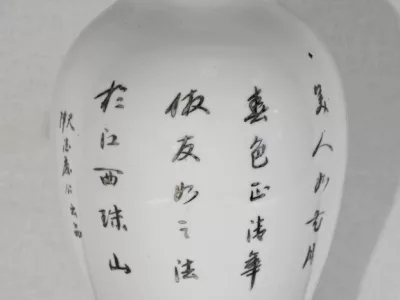 美人如古月
春色正清華
倣友如之法
於江西珠山